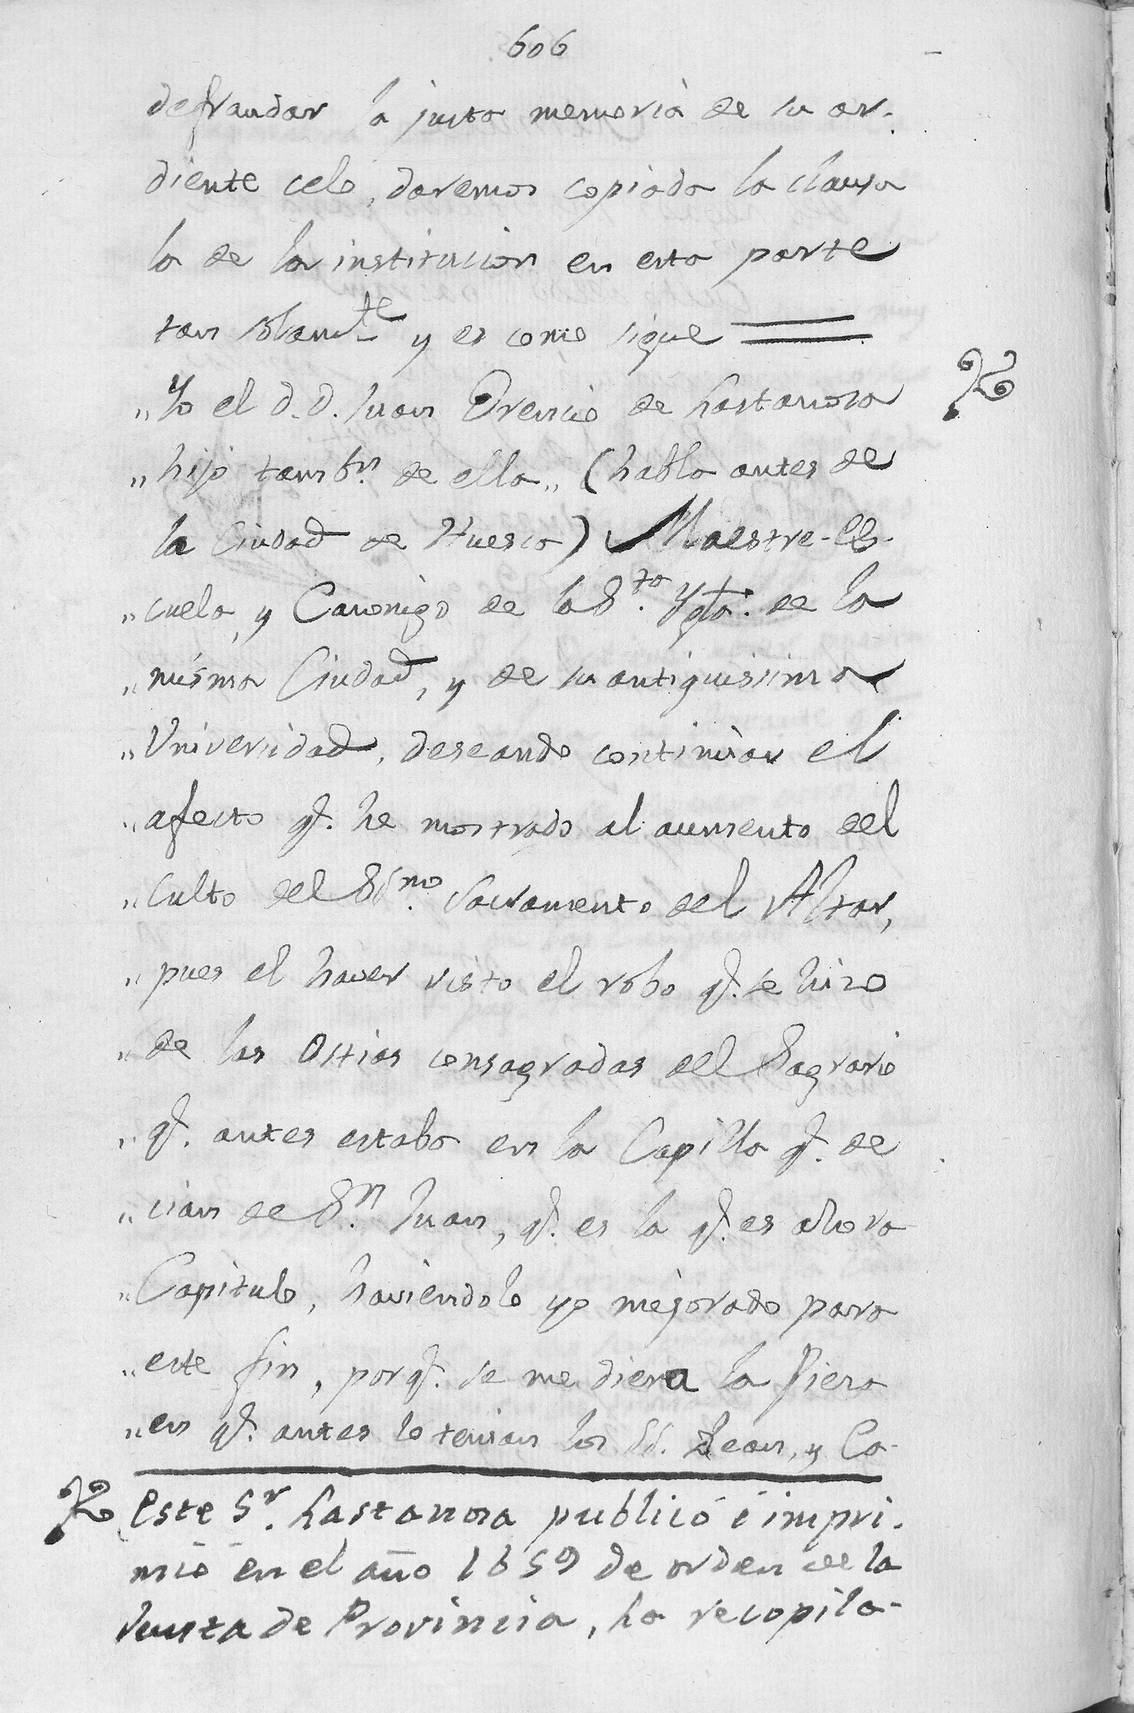 606
defraudar la justa memoria de su ar-
diente celo, daremos copiada la clausu
la de la institucion en esta parte
tan solam.te y es como sigue
„ Yo el D. D. Juan Orencio de Lastanosa
„ hijo tamb.n de ella „ (habla antes de
la Ciudad de Huesca) Maestre-Es-
„ cuela, y Canonigo de la S.ta Ygla. de la
„ misma Ciudad, y de su antiquissima
„ Universidad, deseando continuar el
„ afecto q.e he mostrado al aumento del
„ culto del SS.mo Sacramento del Altar,
„ pues el haver visto el robo q.e se hizo
„ de las Ostias consagradas del Sagrario
„ q.e antes estaba en la Capilla q.e de
„ cian de S.n Juan, q.e es la q.e es ahora
„ Capitulo, haviendolo yo mejorado para
„ este fin, porq.e se me diera la Pieza
„ en q.e antes lo tenian los SS. Dean, y Ca-
Este S.r Lastanosa publicó é impri-
mió en el año 1659 de orden de la
Junta de Provincia, la recopila-